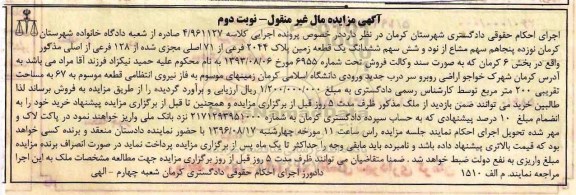 آگهی مزایده مال غیر منقول- نوبت دوم
اجرای احکام حقوقی دادگستری شهرستان کرمان در نظر دارد در خصوص پرونده اجرایی کلاسه ۴/۹۶۱۱۲۷ صادره از شعبه دادگاه خانواده شهرستان
کرمان نوزده پنجاهم سهم مشاع از نود و شش سهم ششدانگ یک قطعه زمین پلاک ۲۰۴۴ فرعی از ۷۱ اصلی مجزی شده از ۱۲۸ فرعی از اصلی مذکور
واقع در بخش ۶ کرمان که به صورت سند وکالت فروش تحت شماره ۶۹۵۵ مورخ ۱۳۹۳/۰۸/۰۶ به نام محکوم علیه حمید نیکزاد فرزند آقا مراد می باشد به
آدرس کرمان شهرک خواجو اراضی روبرو سر درب جدید ورودی دانشگاه اسلامی کرمان زمینهای موسوم به فاز نیروی انتظامی قطعه موسوم به ۶۷ به مساحت
تقریبی ۲۰۰ متر مربع توسط کارشناس رسمی دادگستری به مبلغ ۱/۲۰۰/۰۰۰/۰۰۰ ریال ارزیابی و برآورد گردیده را از طریق مزایده به فروش برساند لذا
طالبین خرید می توانند ضمن بازدید از ملک مذکور ظرف مدت ۵ روز قبل از برگزاری مزایده و همچنین تا قبل از برگزاری مزایده پیشنهاد خرید خود را به
انضمام مبلغ ۱۰ درصد پیشنهادی که به حساب سپرده دادگستری کرمان به شماره ۲۱۷۱۲۹۳۹۵۱۰۰۰ نزد بانک ملی واریز خواهند نمود در پاکت لاک و
مهر شده تحویل اجرای احکام نمایند جلسه مزایده راس ساعت ۱۱ مورخه چهارشنبه ۱۳۹۶/۰۸/۱۷ با حضور نماینده دادستان منعقد و برنده کسی خواهد
بود که قیمت بالاتری پیشنهاد داده باشد و نامبرده باید مابقی وجه را حداکثر تا یک ماه پس از برگزاری مزایده پرداخت نماید در صورت انصراف برنده مزایده
مبلغ واریزی به نفع دولت ضبط خواهد شد. ضمنا متقاضیان می توانند ظرف مدت ۵ روز قبل از روز برگزاری مزایده جهت مطالعه مشخصات ملک به این اجرا
مراجعه نمایند. م الف ۱۵۱۰ دادورز اجرای احکام حقوقی دادگستری کرمان شعبه چهارم - الهی